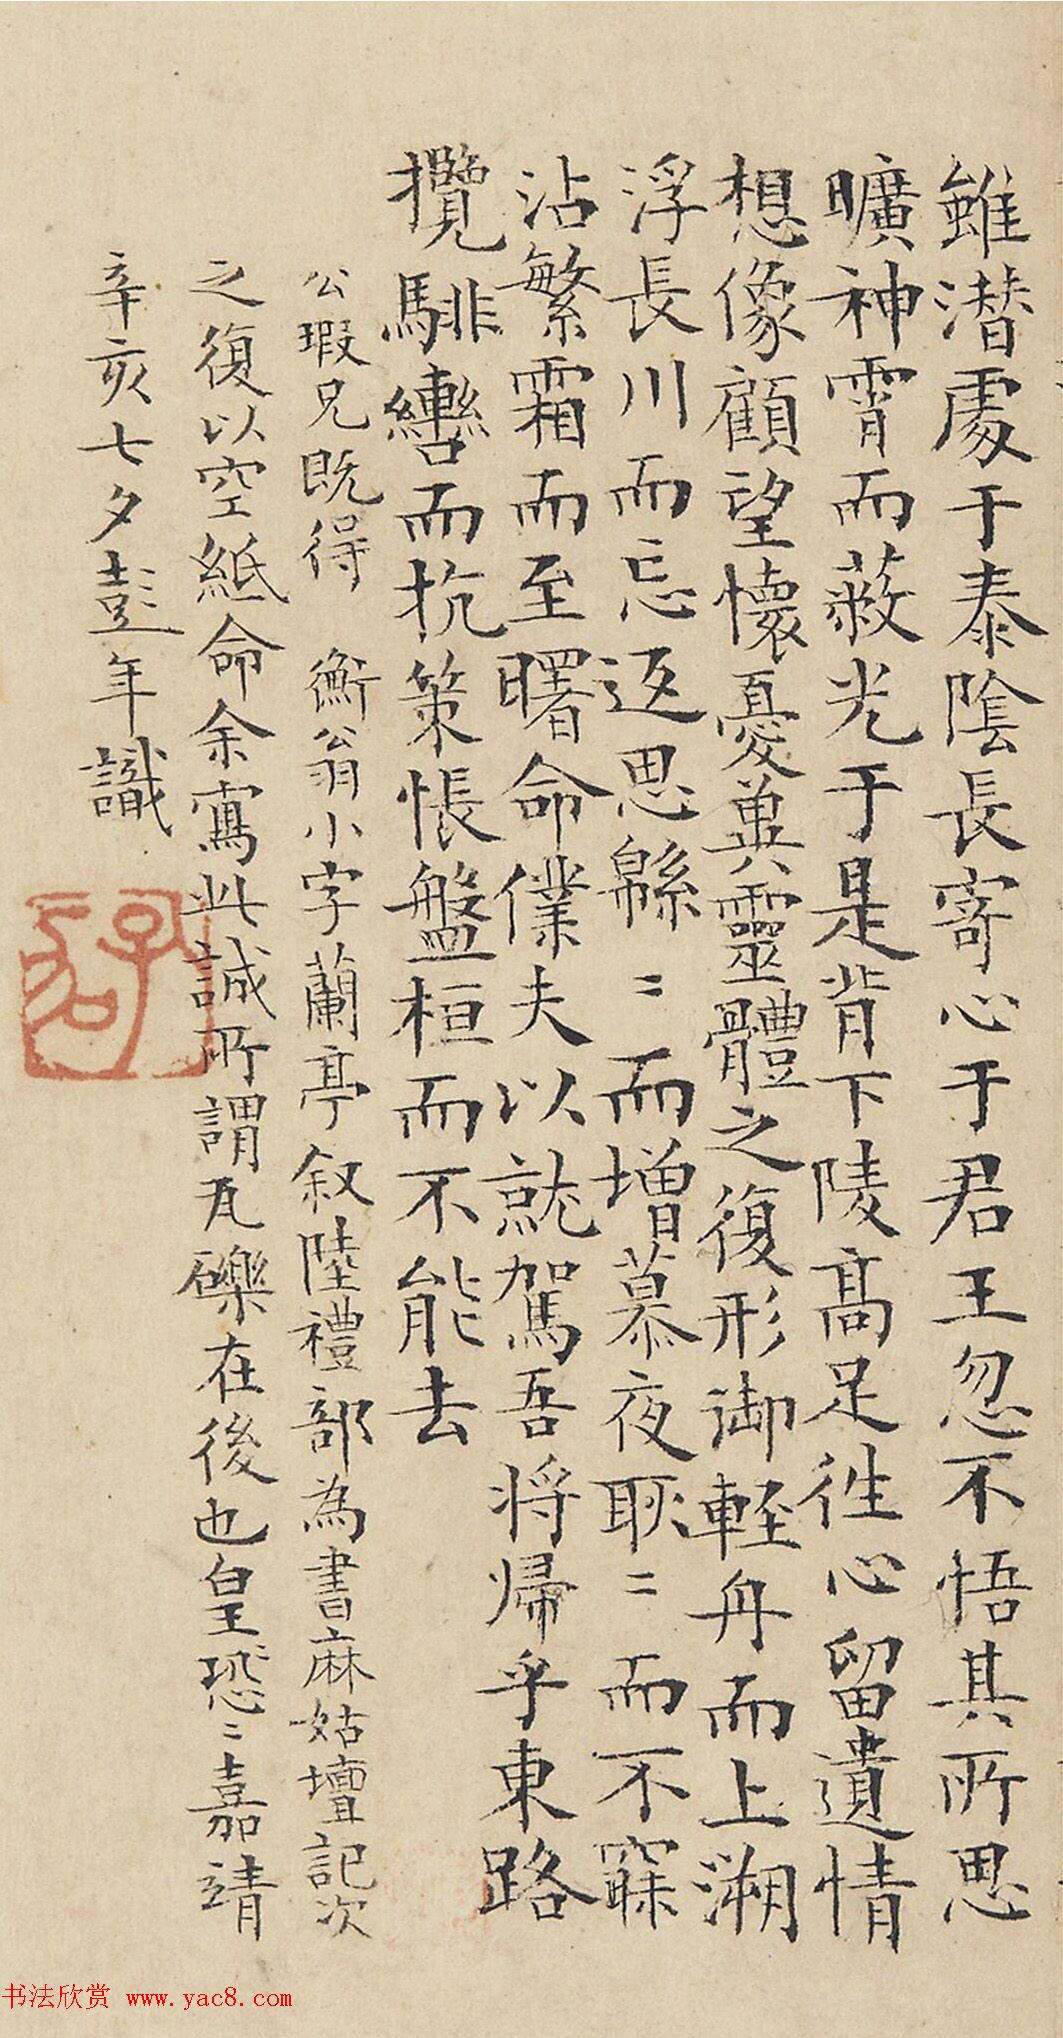 雖潛處于泰陰長寄心于君王忽不悟其所思
曠神宵而蔽光于是背下陵高足徃心留遺情
想像顧望懷憂兾靈體之復形御輕舟而上溯
浮長川而忘返思緜〻而增慕夜耿〻而不寐
沾繁霜而至曙命僕夫以就駕吾將歸乎東路
攬騑轡而抗策悵盤桓而不能去
公瑕兄既得 衡翁小字蘭亭叙陸禮部為書麻姑壇記次
之復以空紙命余寫此誠所謂瓦礫在後也皇恐〻嘉靖
辛亥七夕彭年識
书法欣赏 www.yac8.com